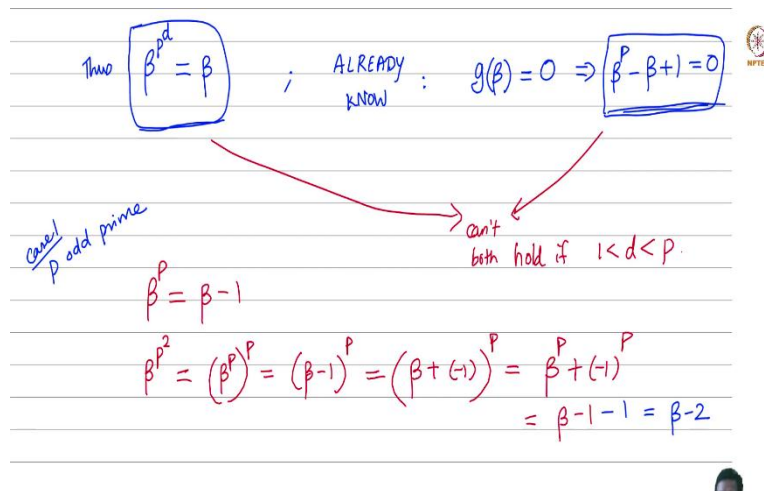 Thus β^{p^d} = β ; ALREADY KNOW : g(β) = 0 ⇒ β^p - β + 1 = 0
NPTEL
can't
both hold if 1 < d < p.
Case 1
p odd prime
β^p = β - 1
β^{p^2} = (β^p)^p = (β-1)^p = (β + (-1))^p = β^p + (-1)^p
= β - 1 - 1 = β - 2